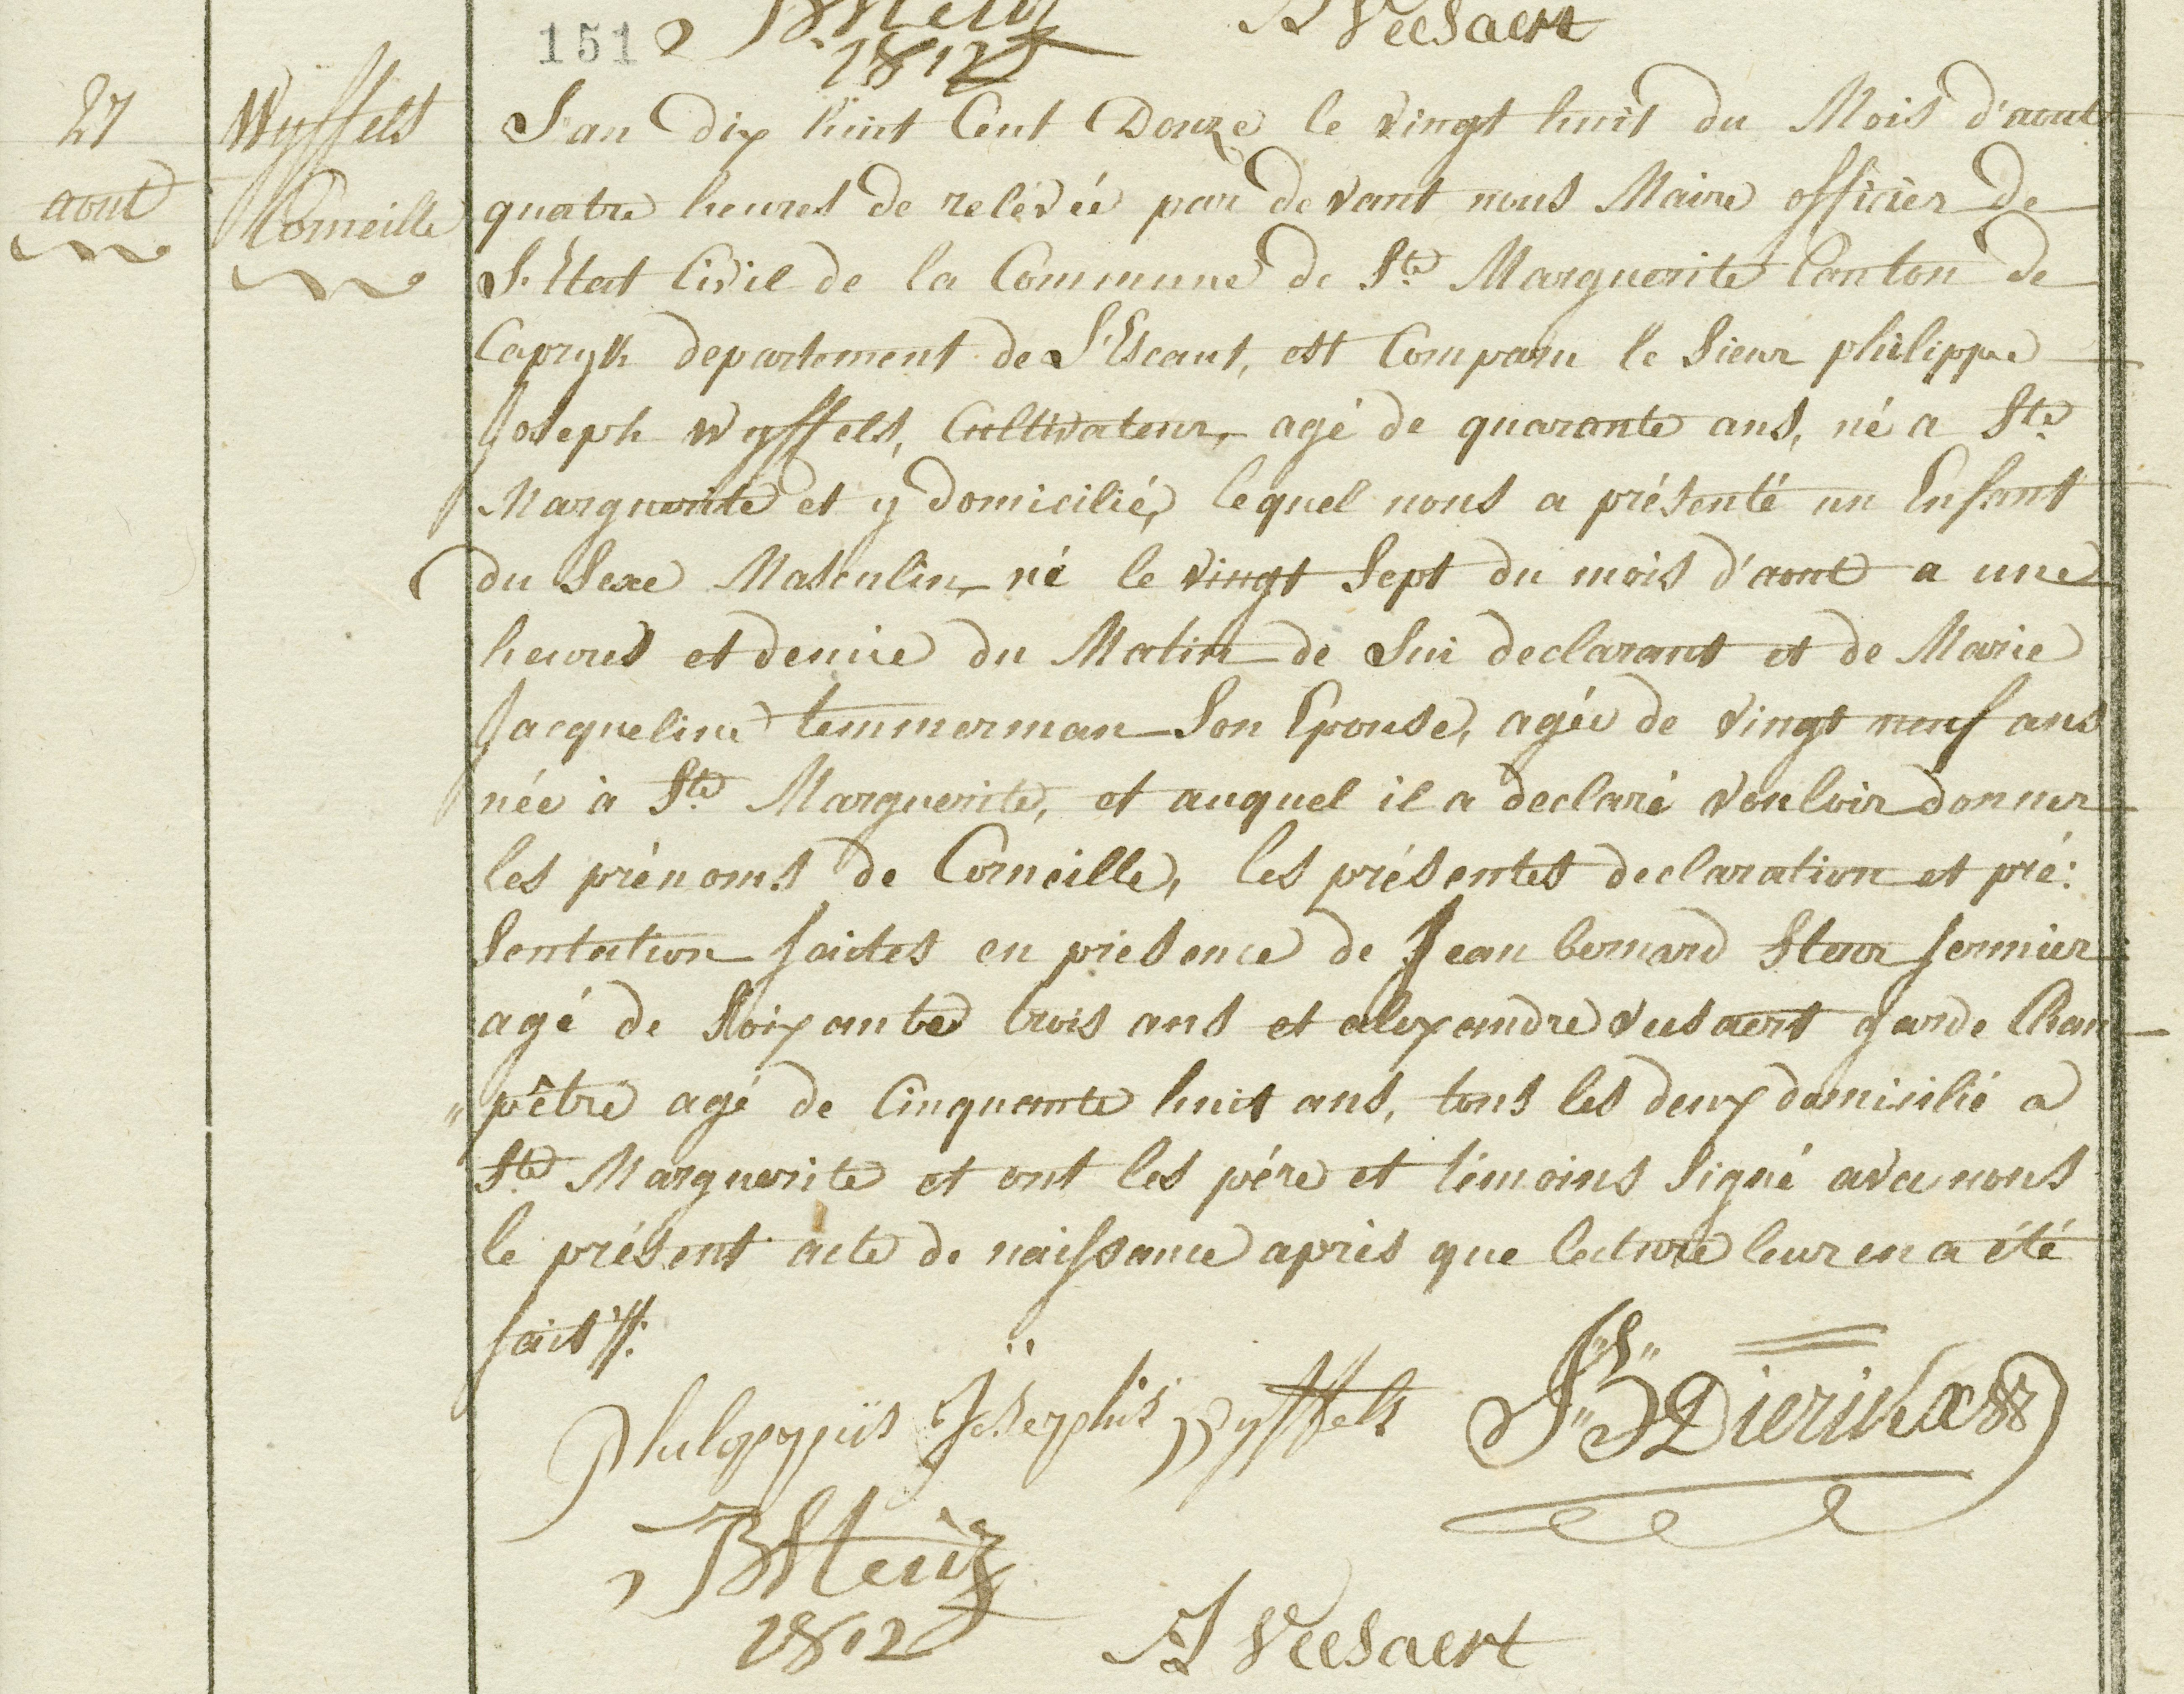 151
1812
A Veesaert
27
aout
Wyffels
Corneille
L'an dix huit Cent Douze le vingt huit du Mois d'aout
quatre heures de relévée par devant nous Maire officier de
L'Etat Civil de la Commune de Ste Marguerite Canton de
Capryk departement de L'Escaut, est Comparu le Sieur philippe
Joseph Wyffels, Cultivateur, agé de quarante ans, né a Ste
Marguerite et y domicilié, lequel nous a présenté un Enfant
du Sexe Masculin, né le vingt Sept du mois d'aout a une
heures et demie du Matin de Lui declarant et de Marie
Jacqueline temmerman Son Epouse, agée de vingt neuf ans
née à Ste Marguerite, et auquel il a declaré vouloir donner
les prénoms de Corneille, les présentes declaration et pré:
Sentation faites en présence de Jean bernard fermier
agé de Soixante trois ans et alexandre veesaert garde Cham
"pêtre agé de Cinquante huit ans, tous les deux domicilié a
Ste Marguerite et ont les pére et témoins Signé avec nous
le présent acte de naissance après que lecture leur en a été
fait //.
Josephus Wyffels
Dierickx
1812
A Veesaert